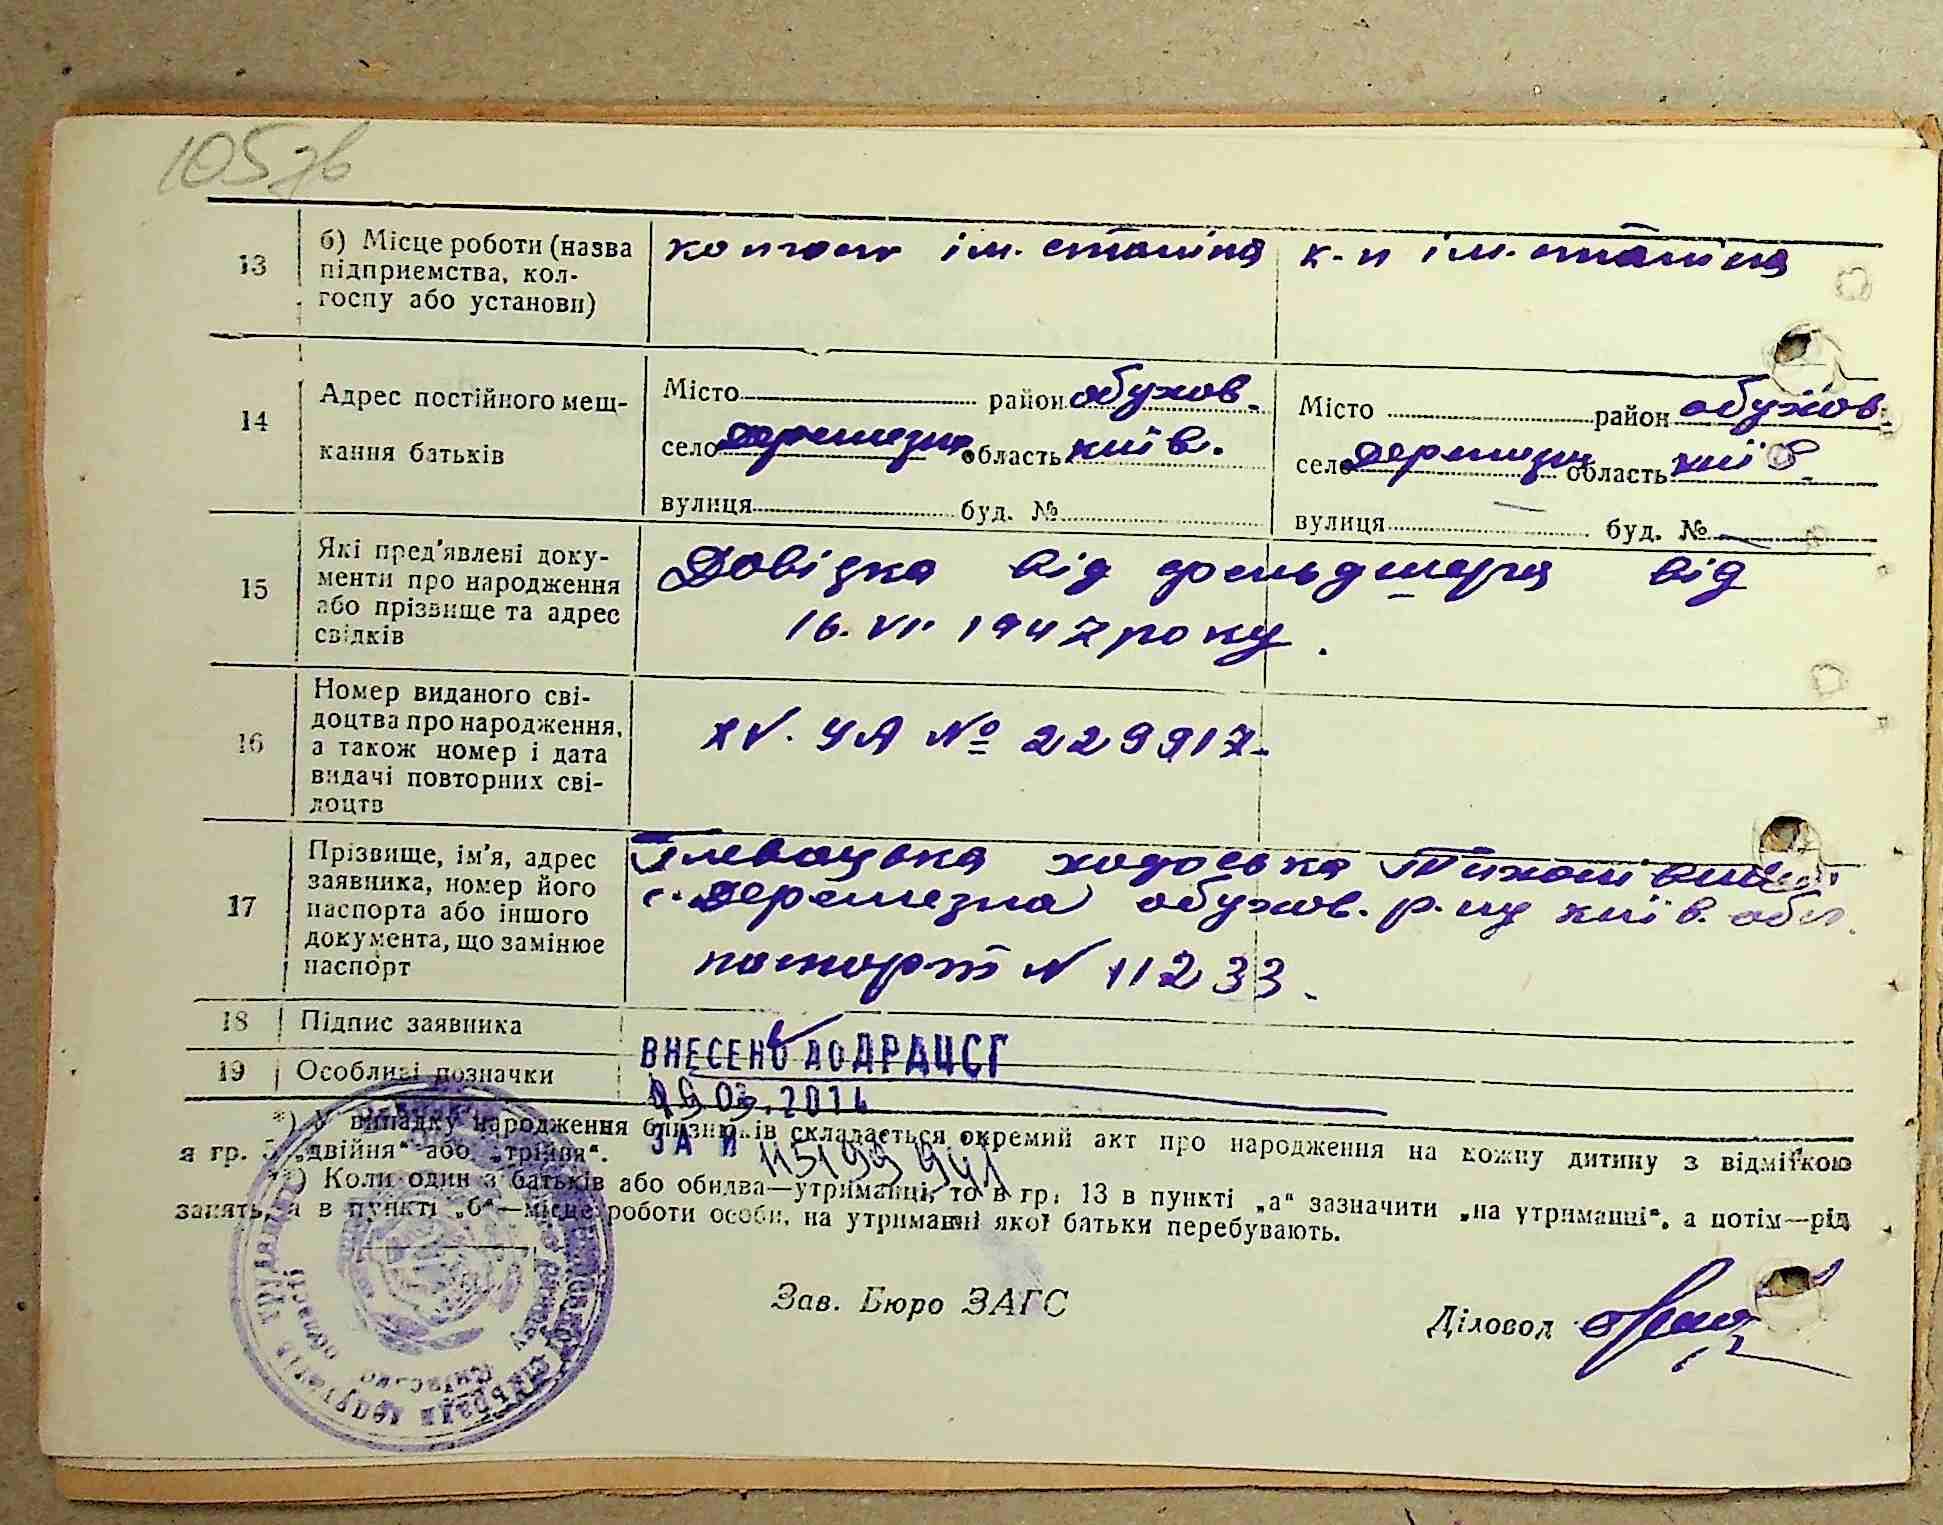 105
13
б) Місце роботи (назва
підприємства, кол-
госпу або установи)
колгосп ім. сталіна
к-п ім. сталіна
14
Адрес постійного меш-
кання батьків
Місто район обухов.
село деремезна область київ.
вулиця буд. №
Місто район обухов.
село деремезна область київ
вулиця буд. №
15
Які пред'явлені доку-
менти про народження
або прізвище та адрес
свідків
Довідка від фельдшера від
16. VI. 1947 року.
16
Номер виданого сві-
доцтва про народження,
а також номер і дата
видачі повторних сві-
доцтв
XV. УА № 229917.
17
Прізвище, ім'я, адрес
заявника, номер його
паспорта або іншого
документа, що замінює
паспорт
с. Деремезна обухов. р-ну київ. обл.
паспорт N 11233.
18 Підпис заявника
19 Особливі позначки
ВНЕСЕНО ДО ДРАЦСГ
ЗА N
*) У випадку народження близнюків складається окремий акт про народження на кожну дитину з відміткою
я гр. 5 „двійня“ або „трійня“.
**) Коли один з батьків або обидва—утриманці, то в гр. 13 в пункті „а“ зазначити „на утриманні“, а потім—рід
занять, а в пункті „б“—місце роботи особи, на утриманні якої батьки перебувають.
Зав. Бюро ЗАГС
Діловод